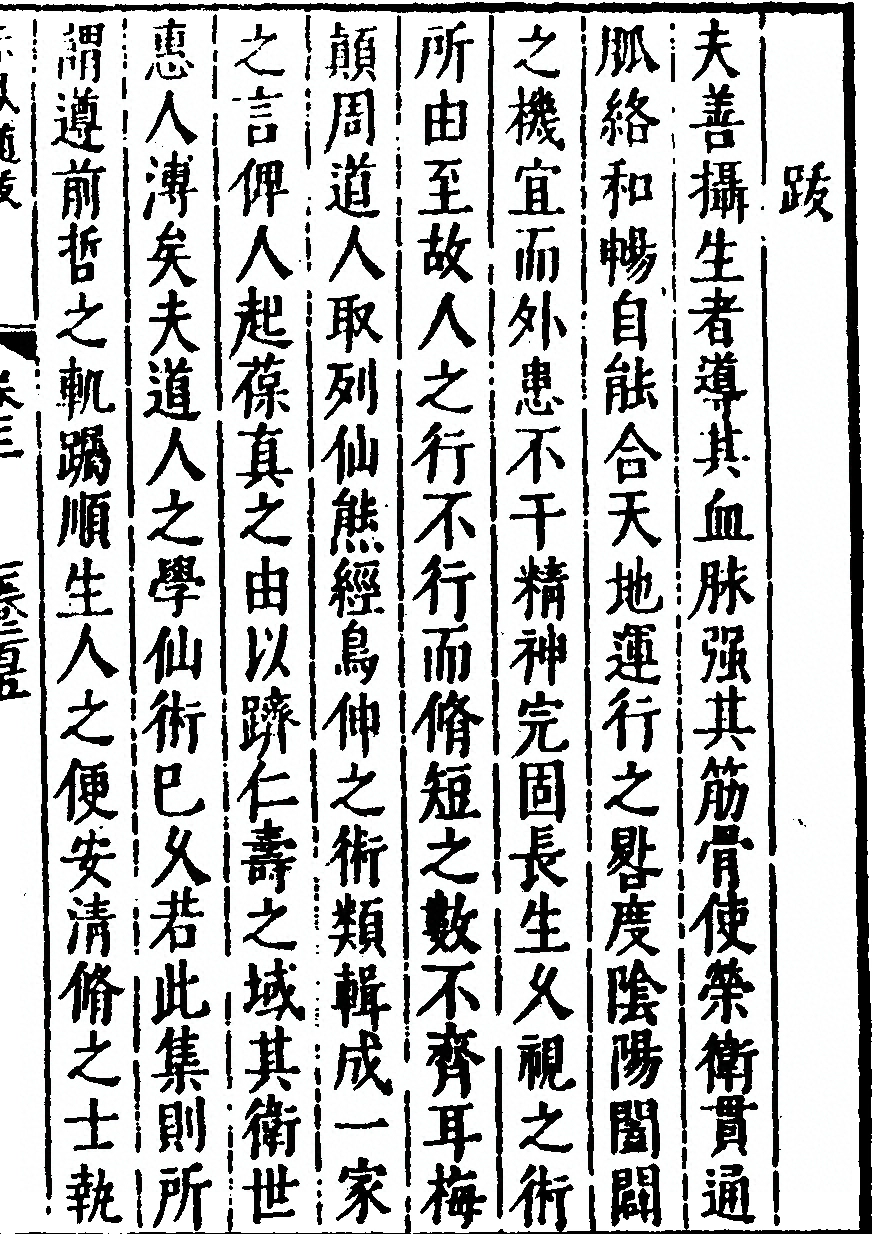 跋
夫善攝生者導其血脉强其筋骨使榮衛貫通
脈絡和暢自能合天地運行之晷度陰陽闔闢
之機宜而外患不干精神完固長生乆視之術
所由至故人之行不行而脩短之數不齊耳梅
顛周道人取列仙熊經鳥伸之術類輯成一家
之言俾人起葆真之由以躋仁壽之域其衛世
惠人溥矣夫道人之學仙術巳乆若此集則所
謂遵前哲之軌躅順生人之便安清脩之士執
卷三